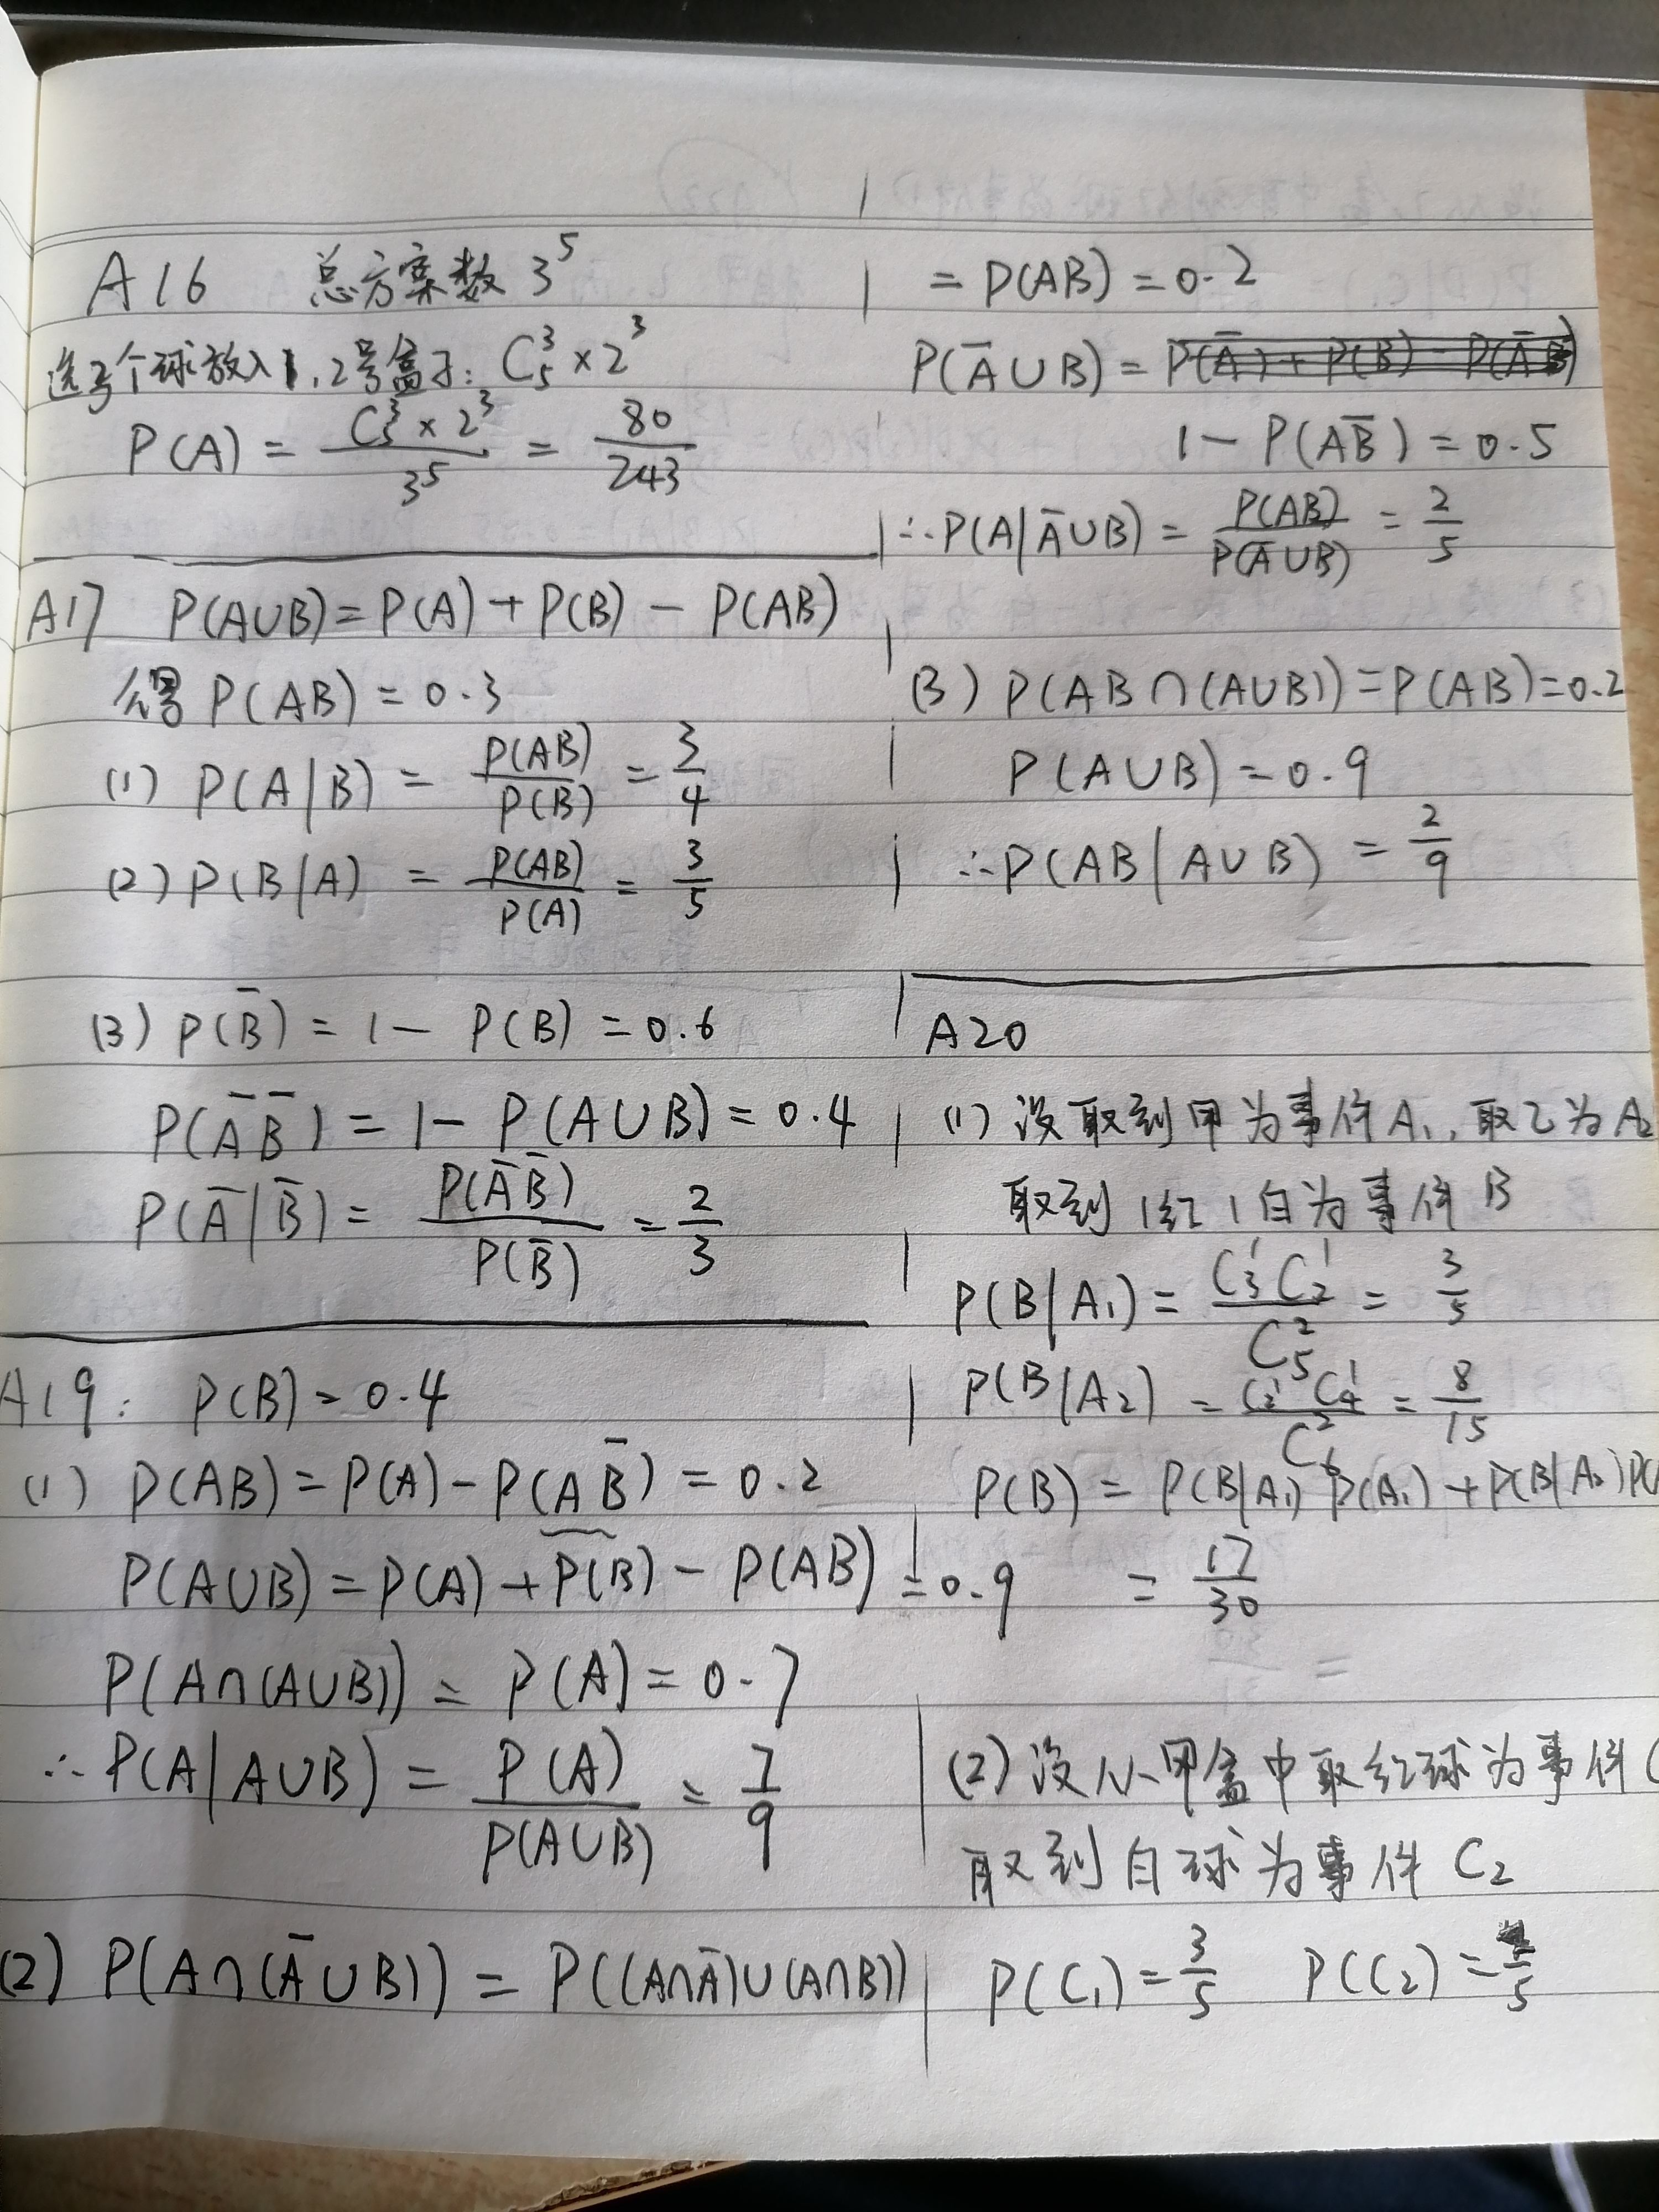 A16 总方案数 3⁵
选3个球放入1,2号盒子: C₅³×2³
P(A) = C₅³×2³/3⁵ = 80/243
A17 P(A∪B)=P(A)+P(B)-P(AB)
得 P(AB)=0.3
(1) P(A|B) = P(AB)/P(B) = 3/4
(2) P(B|A) = P(AB)/P(A) = 3/5
(3) P(B̄)=1-P(B)=0.6
P(ĀB̄)=1-P(A∪B)=0.4
P(Ā|B̄)= P(ĀB̄)/P(B̄) = 2/3
A19: P(B)=0.4
(1) P(AB)=P(A)-P(AB̄)=0.2
P(A∪B)=P(A)+P(B)-P(AB)=0.9
P(A∩(A∪B))=P(A)=0.7
∴P(A|A∪B)= P(A)/P(A∪B) = 7/9
(2) P(A∩(Ā∪B))=P((A∩Ā)∪(A∩B))
=P(AB)=0.2
P(Ā∪B)=
1-P(AB̄)=0.5
∴P(A|Ā∪B)= P(AB)/P(Ā∪B) = 2/5
(3) P(AB∩(A∪B))=P(AB)=0.2
P(A∪B)=0.9
∴P(AB|A∪B)=2/9
A20
(1) 设取到甲为事件A₁,取乙为A₂
取到1红1白为事件B
P(B|A₁)= C₃¹C₂¹/C₅² = 3/5
P(B|A₂)= C₂¹C₄¹/C₆² = 8/15
P(B)=P(B|A₁)P(A₁)+P(B|A₂)P(
= 17/30
(2) 设从甲盒中取红球为事件C
取到白球为事件C₂
P(C₁)=3/5 P(C₂)=